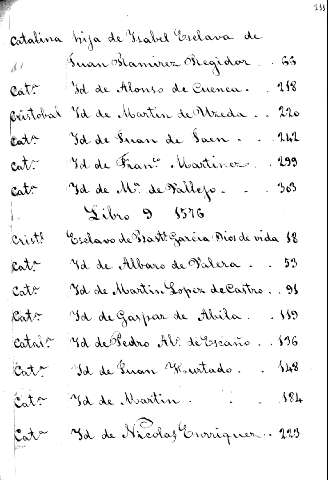 Catalina hija de Ysabel Esclava de
Juan Ramirez Regidor . . 66
Cat.ª Id de Alonso de Cuenca . . 218
Cristobal Id de Martin de Uzeda . . 220
Cat.ª Id de Juan de Jaen . . 242
Cat.ª Id de Fran.co Martinez . . 299
Cat.ª Id de M.ª de Vallejo . . 303
Libro 9 1576
Crist.l Esclavo de Bart.e Garcia Dios de vida 18
Cat.ª Id de Albaro de Valera . . 53
Cat.ª Id de Martin Lopez de Castro . . 91
Cat.ª Id de Gaspar de Abila . . 119
Catal.ª Id de Pedro Al.º de Escaño . . 136
Cat.ª Id de Juan Hurtado . . 148
Cat.ª Id de Martin . . . 184
Cat.ª Id de Nicolas Enrriquez . . 223